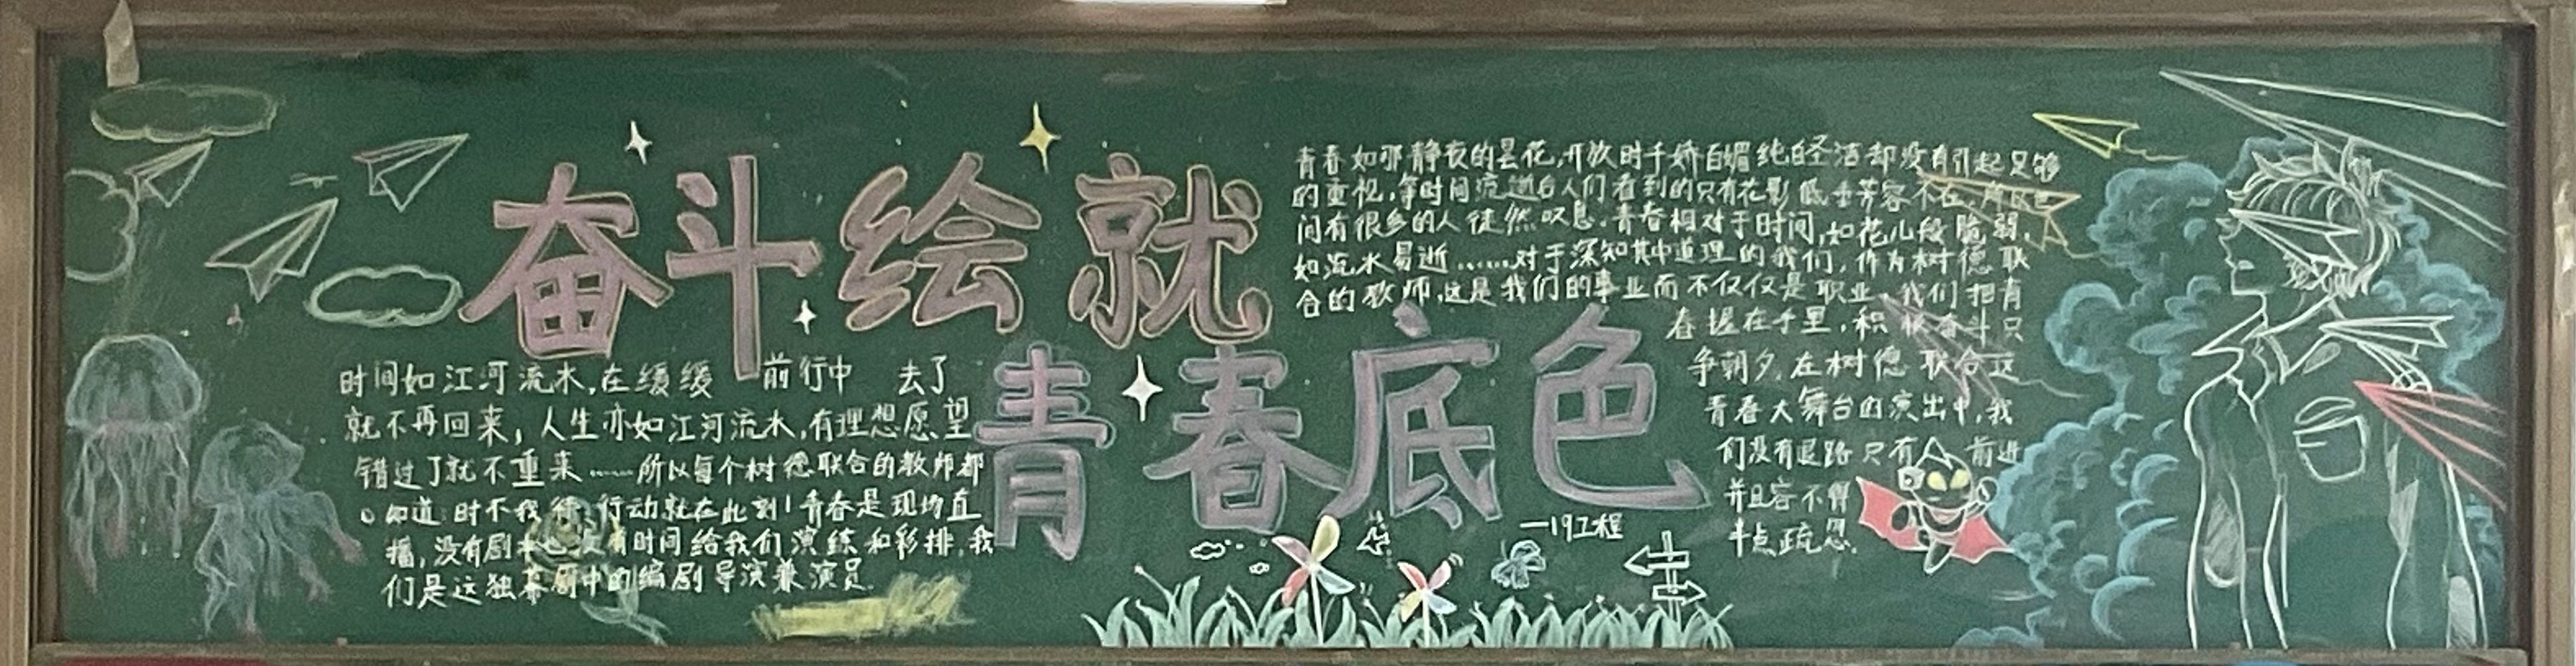 奋斗绘就
青春底色
时间如江河流水,在缓缓 前行中 去了
就不再回来,人生亦如江河流水,有理想愿望
错过了就不重来……所以每个树德联合的教师都
知道时不我待 行动就在此刻!青春是现场直
播,没有剧本也没有时间给我们演练和彩排,我
们是这独幕剧中的编剧导演兼演员.
青春如那静夜的昙花,开放时千娇百媚纯白圣洁却没有引起足够
的重视,等时间流逝后人们看到的只有花影低垂芳容不在.所以
间有很多的人徒然叹息.青春相对于时间,如花儿般脆弱,
如流水易逝……对于深知其中道理的我们,作为树德联
合的教师,这是我们的事业而不仅仅是职业,我们把青
春握在手里,积极奋斗只
争朝夕.在树德联合这
青春大舞台的演出中,我
们没有退路只有 前进
并且容不得
半点疏忽.
—19工程